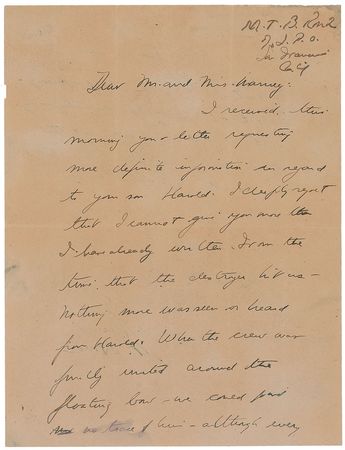 M. T. B. Ron 2
% F. P. O.
San Francisco
Calif
Dear Mr. and Mrs. Marney:
I received this
morning your letter requesting
more definite information in regard
to your son Harold. I deeply regret
that I cannot give you more than
I have already written. From the
time that the destroyer hit us -
nothing more was seen or heard
from Harold. When the crew was
finally united around the
floating bow - we could find
no trace of him - although every